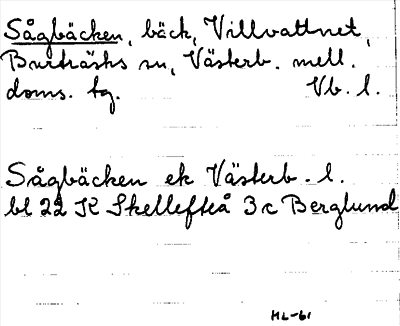 Sågbäcken, bäck, Villvattnet,
Burträsks sn, Västerb. mell.
doms. tg. Vb. l.
Sågbäcken ek Västerb. l.
bl 22 K Skellefteå 3c Berglund
HL-61